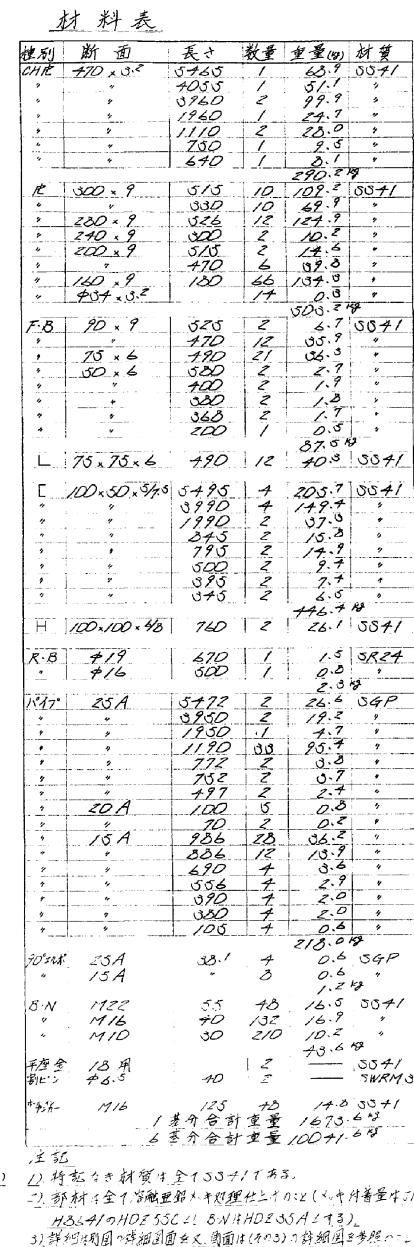 材料表
種別 断面 長さ 数量 重量(kg) 材質
CHPL 470×3.2 5465 1 63.9 SS41
〃 〃 4055 1 51.1 〃
〃 〃 3960 2 99.9 〃
〃 〃 1960 1 24.7 〃
〃 〃 1110 2 28.0 〃
〃 〃 750 1 9.5 〃
〃 〃 640 1 8.1 〃
290.2 kg
PL 300×9 515 10 109.2 SS41
〃 〃 330 10 69.9 〃
〃 280×9 526 12 124.9 〃
〃 240×9 300 2 10.2 〃
〃 200×9 515 2 14.6 〃
〃 〃 470 6 39.8 〃
〃 160×9 180 66 134.3 〃
〃 φ34×3.2 14 0.3 〃
503.2 kg
F·B 90×9 525 2 6.7 SS41
〃 〃 470 12 35.9 〃
〃 75×6 490 21 36.3 〃
〃 50×6 580 2 2.7 〃
〃 〃 400 2 1.9 〃
〃 〃 380 2 1.8 〃
〃 〃 368 2 1.7 〃
〃 〃 200 1 0.5 〃
87.5 kg
L 75×75×6 490 12 40.3 SS41
[ 100×50×5/7.5 5495 4 205.7 SS41
〃 〃 3990 4 149.4 〃
〃 〃 1990 2 37.3 〃
〃 〃 845 2 15.8 〃
〃 〃 795 2 14.9 〃
〃 〃 500 2 9.4 〃
〃 〃 395 2 7.4 〃
〃 〃 345 2 6.5 〃
446.4 kg
H 100×100×6/8 760 2 26.1 SS41
R·B φ19 670 1 1.5 SR24
〃 φ16 500 1 0.8 〃
2.3 kg
パイプ 25A 5472 2 26.6 SGP
〃 〃 3950 2 19.2 〃
〃 〃 1950 1 4.7 〃
〃 〃 1190 33 95.4 〃
〃 〃 772 2 3.8 〃
〃 〃 752 2 3.7 〃
〃 〃 497 2 2.4 〃
〃 20A 100 5 0.8 〃
〃 〃 70 2 0.2 〃
〃 15A 986 28 36.2 〃
〃 〃 886 12 13.9 〃
〃 〃 690 4 3.6 〃
〃 〃 556 4 2.9 〃
〃 〃 390 4 2.0 〃
〃 〃 380 4 2.0 〃
〃 〃 105 4 0.6 〃
218.0 kg
90°エルボ 25A 38.1 4 0.6 SGP
〃 15A 〃 8 0.6 〃
1.2 kg
B·N M22 55 48 16.5 SS41
〃 M16 40 132 16.9 〃
〃 M10 30 210 10.2 〃
43.6 kg
平座金 18用 2 — SS41
割ピン φ6.3 40 2 — SWRM3
M16 125 48 14.8 SS41
1基分合計重量 1673.6 kg
6基分合計重量 10041.6 kg
注記
1). 特記なき材質は全てSS41である。
2). 部材は全て溶融亜鉛メキ処理仕上げのこと(メッキ付着量はJI
H8641のHDZ55CとしB·NはHDZ35Aとする)。
3) 詳細は